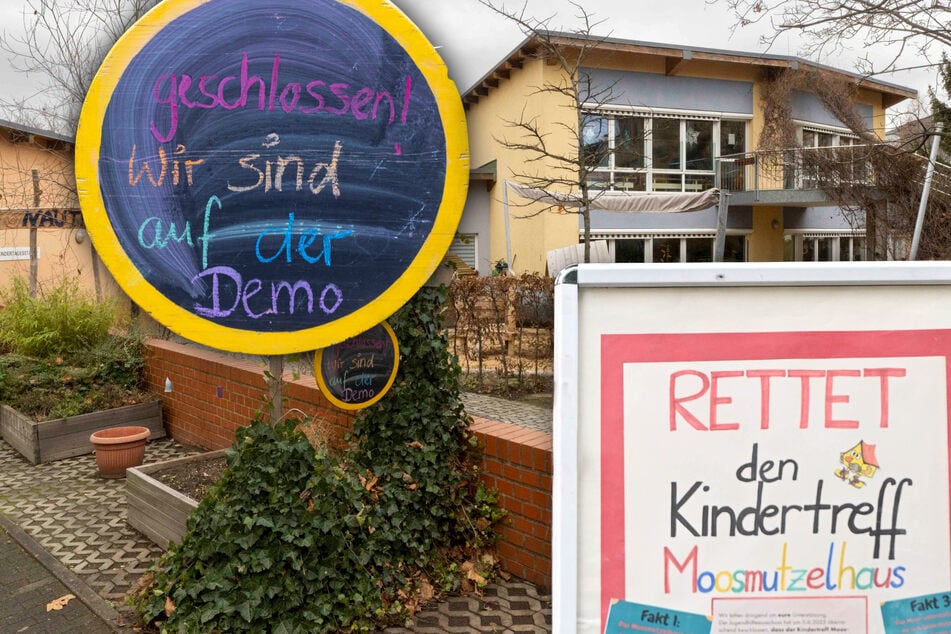 geschlossen!
Wir sind
auf der
Demo
NAUT
geschlossen!
Wir sind
auf der
Demo
RETTET
den
Kindertreff
Moosmutzelhaus
Fakt 1:
Fakt 3
Wir bitten dringend um eure Unterstützung.
Der Jugendhilfeausschuss hat am 5.6.2023
beschlossen, dass der Kindertreff Moos-